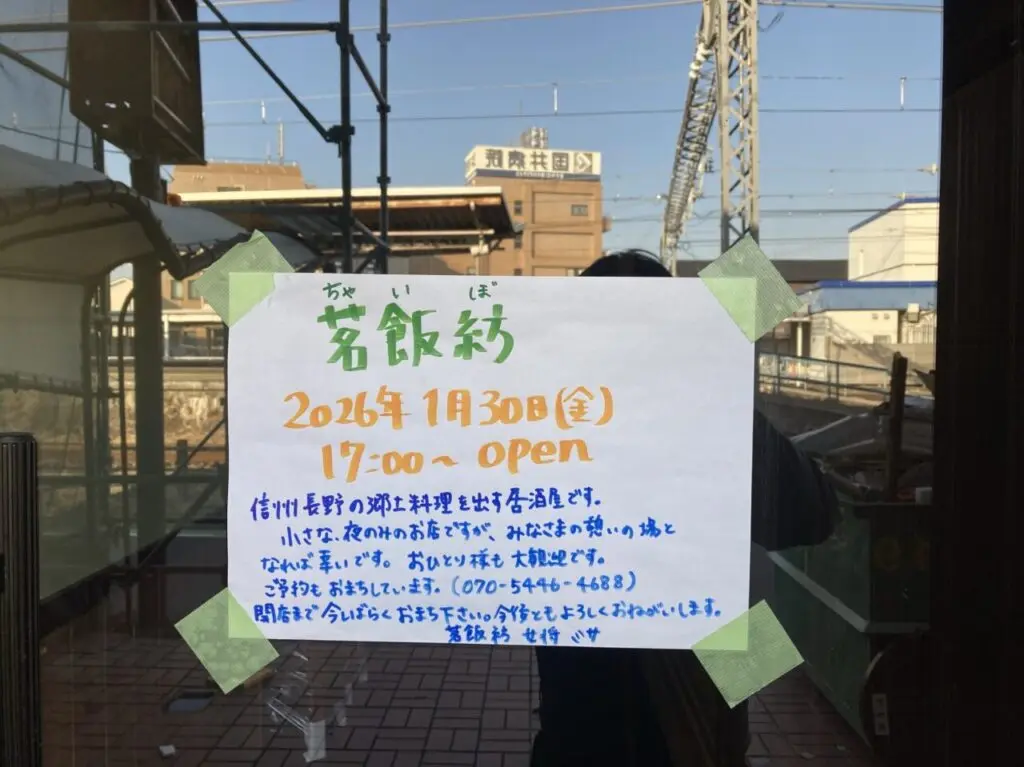 国井病院
ちゃ い ぼ
茗飯紡
2026年 1月30日(金)
17:00～ open
信州長野の郷土料理を出す居酒屋です。
小さな、夜のみのお店ですが、みなさまの憩いの場と
なれば幸いです。おひとり様も大歓迎です。
ご予約もおまちしています。(070-5446-4688)
開店まで今しばらくおまち下さい。今後ともよろしくおねがいします。
茗飯紡 女将